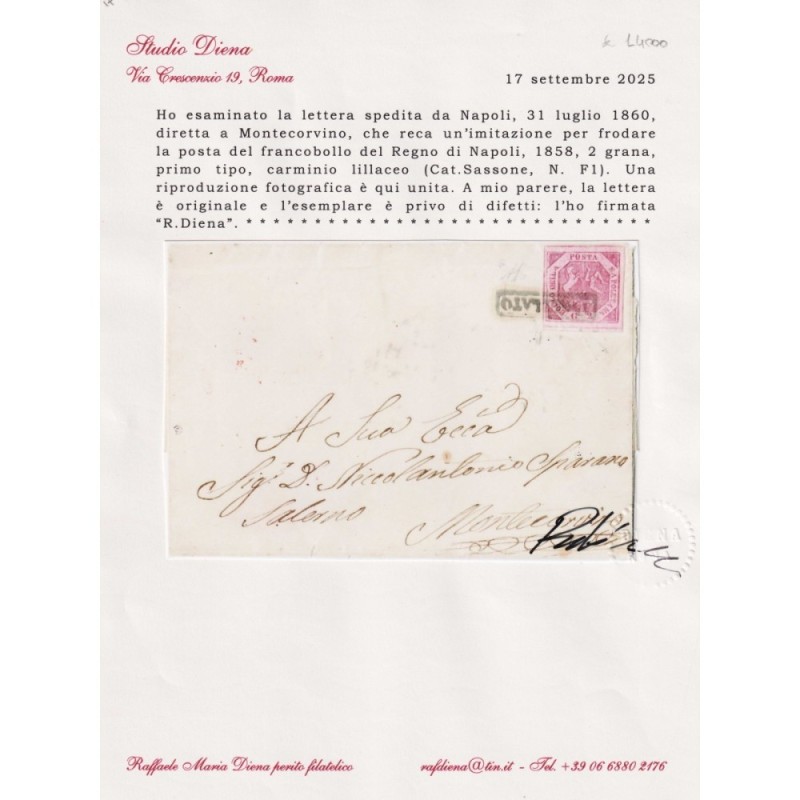 Studio Diena
Via Crescenzio 19, Roma
17 settembre 2025
Ho esaminato la lettera spedita da Napoli, 31 luglio 1860,
diretta a Montecorvino, che reca un'imitazione per frodare
la posta del francobollo del Regno di Napoli, 1858, 2 grana,
primo tipo, carminio lillaceo (Cat.Sassone, N. F1). Una
riproduzione fotografica è qui unita. A mio parere, la lettera
è originale e l'esemplare è privo di difetti: l'ho firmata
"R.Diena". * * * * * * * * * * * * * * * * * * * * * * * * * * * * * * * *
POSTA
A Sua Ecca
Sigr D. Niccolantonio Sparano
Salerno
Montecorvino
Raffaele Maria Diena perito filatelico
rafdiena@tin.it - Tel. +39 06 6880 2176